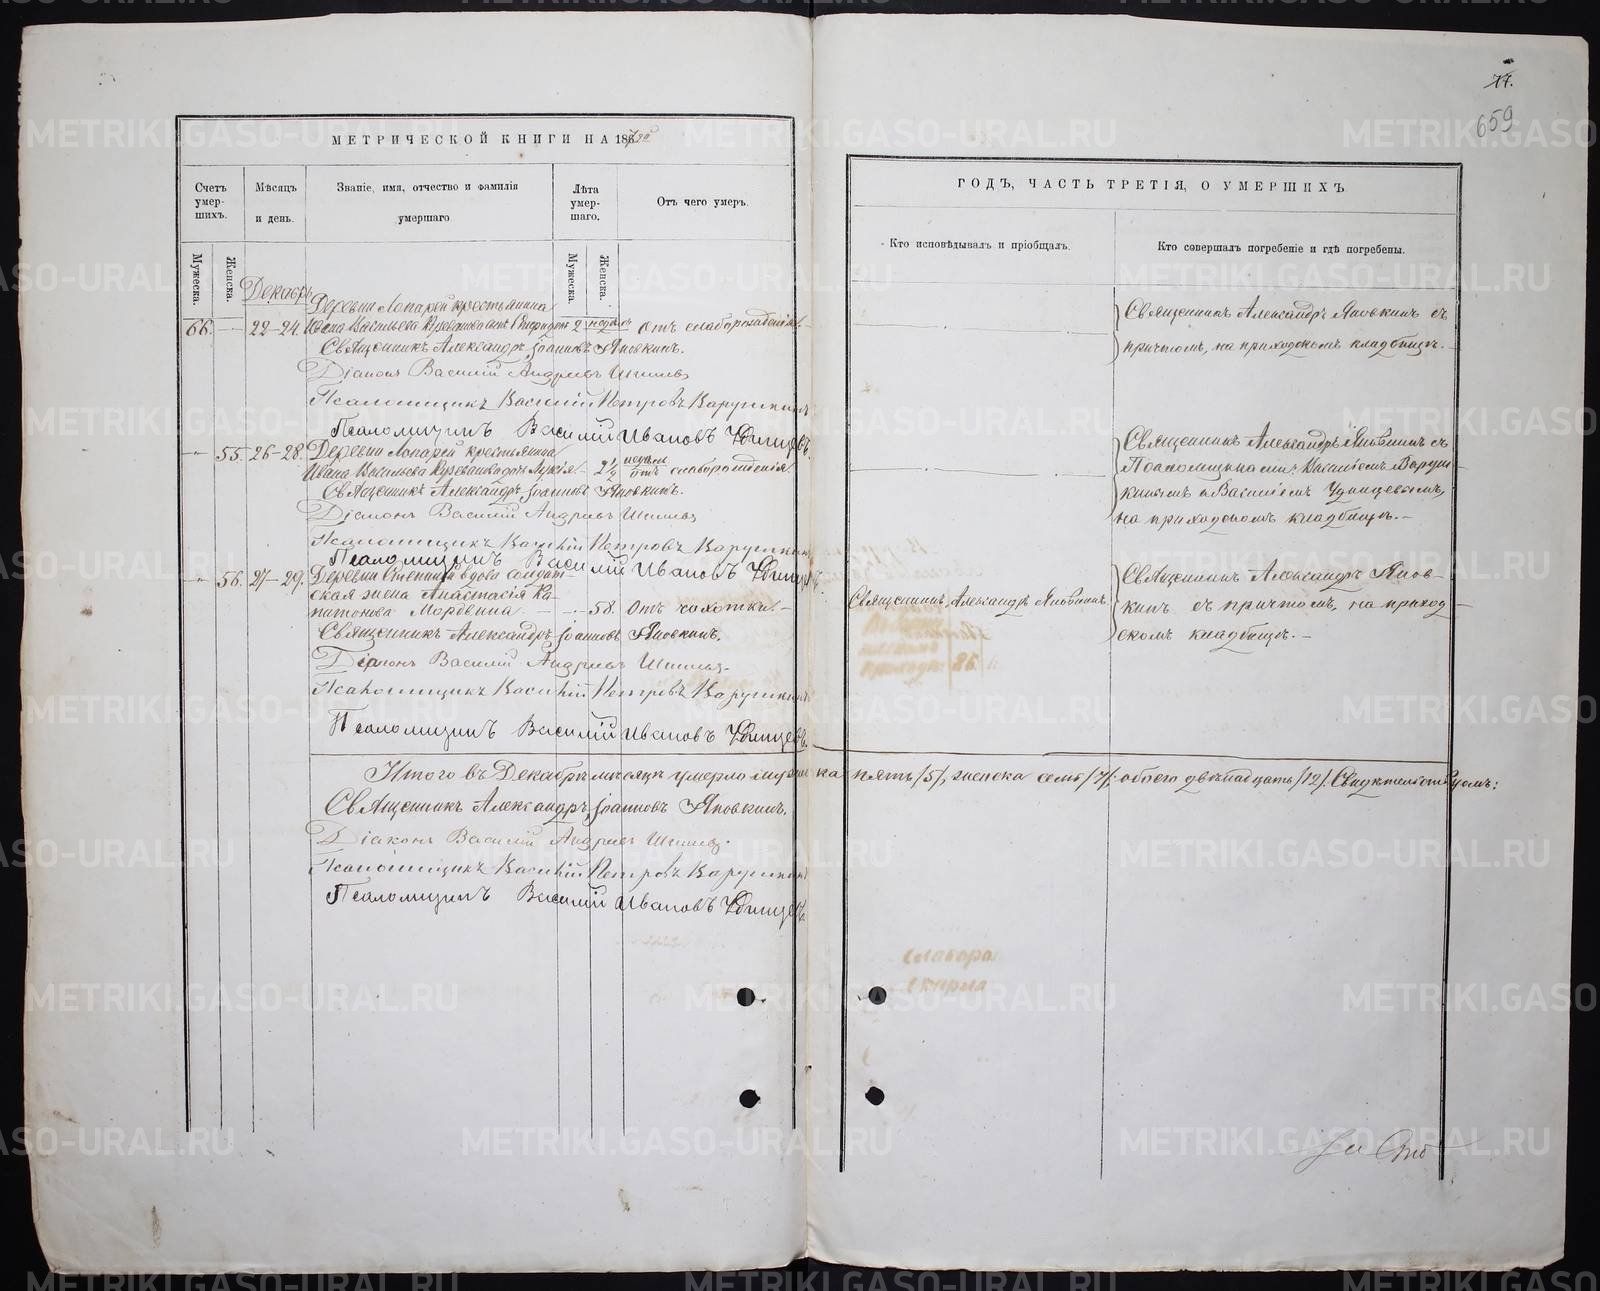 77.
659
МЕТРИЧЕСКОЙ КНИГИ НА 186
ГОДЪ, ЧАСТЬ ТРЕТІЯ, О УМЕРШИХЪ
Счетъ умер-шихъ.
Мѣсяцъ и день.
Званіе, имя, отчество и фамилія умершаго
Лѣта умер-шаго.
Отъ чего умеръ.
Кто исповѣдывалъ и пріобщалъ.
Кто совершалъ погребеніе и гдѣ погребены.
Мужеска.
Женска.
Мужеска.
Женска.
Декабрь
Деревни Лопарей крестьянина
66. 22-24. Ивана Васильева сынъ 2 недѣль Отъ слаборожденія.
Священникъ Александръ Яновкинъ съ
причтомъ, на приходскомъ кладбищѣ.
Священникъ Александръ Іоанновъ Яновкинъ.
Діаконъ Василій Андреевъ
Псаломщикъ Василій Петровъ Варушкинъ
Псаломщикъ Василій Ивановъ Удинцевъ.
55. 26-28. Деревни Лопарей крестьянина
Ивана Васильева 2 1/2 недѣли отъ слаборожденія
Священникъ Александръ Яновкинъ съ
Псаломщиками Василіемъ Варуш-
кинымъ и Василіемъ Удинцевымъ,
на приходскомъ кладбищѣ.
Священникъ Александръ Іоанновъ Яновкинъ.
Діаконъ Василій Андреевъ
Псаломщикъ Василій Петровъ Варушкинъ
Псаломщикъ Василій Ивановъ Удинцевъ.
56. 27-29. Деревни вдова солдат-
ская жена Анастасія Ка-
питонова 58. Отъ чахотки.
Священникъ Александръ Яновкинъ.
Священникъ Александръ Янов-
кинъ съ причтомъ, на приход-
скомъ кладбищѣ.
Священникъ Александръ Іоанновъ Яновкинъ.
Діаконъ Василій Андреевъ
Псаломщикъ Василій Петровъ Варушкинъ
Псаломщикъ Василій Ивановъ Удинцевъ.
Итого въ Декабрѣ мѣсяцѣ умерло мужеска пять /5/, женска семь /7/, обоего двѣнадцать /12/. Свидѣтельствуемъ:
Священникъ Александръ Іоанновъ Яновкинъ.
Діаконъ Василій Андреевъ
Псаломщикъ Василій Петровъ Варушкинъ
Псаломщикъ Василій Ивановъ Удинцевъ.
METRIKI.GASO-URAL.RU